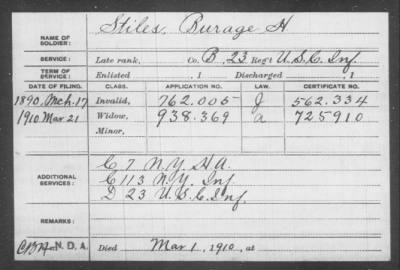 NAME OF SOLDIER: Stiles, Burage H
SERVICE: Late rank, Co. B, 23 Reg't U.S.C. Inf.
TERM OF SERVICE: Enlisted , 1 Discharged , 1
DATE OF FILING. CLASS. APPLICATION NO. LAW. CERTIFICATE NO.
1890, Mch. 17 Invalid, 762.005 J 562.334
1910 Mar 21 Widow, 938.369 a 725910
Minor,
ADDITIONAL SERVICES:
C 7 N.Y. H.A.
G 113 N.Y. Inf
D 23 U.S.C. Inf.
REMARKS:
N.D.A. Died Mar 1, 1910, at